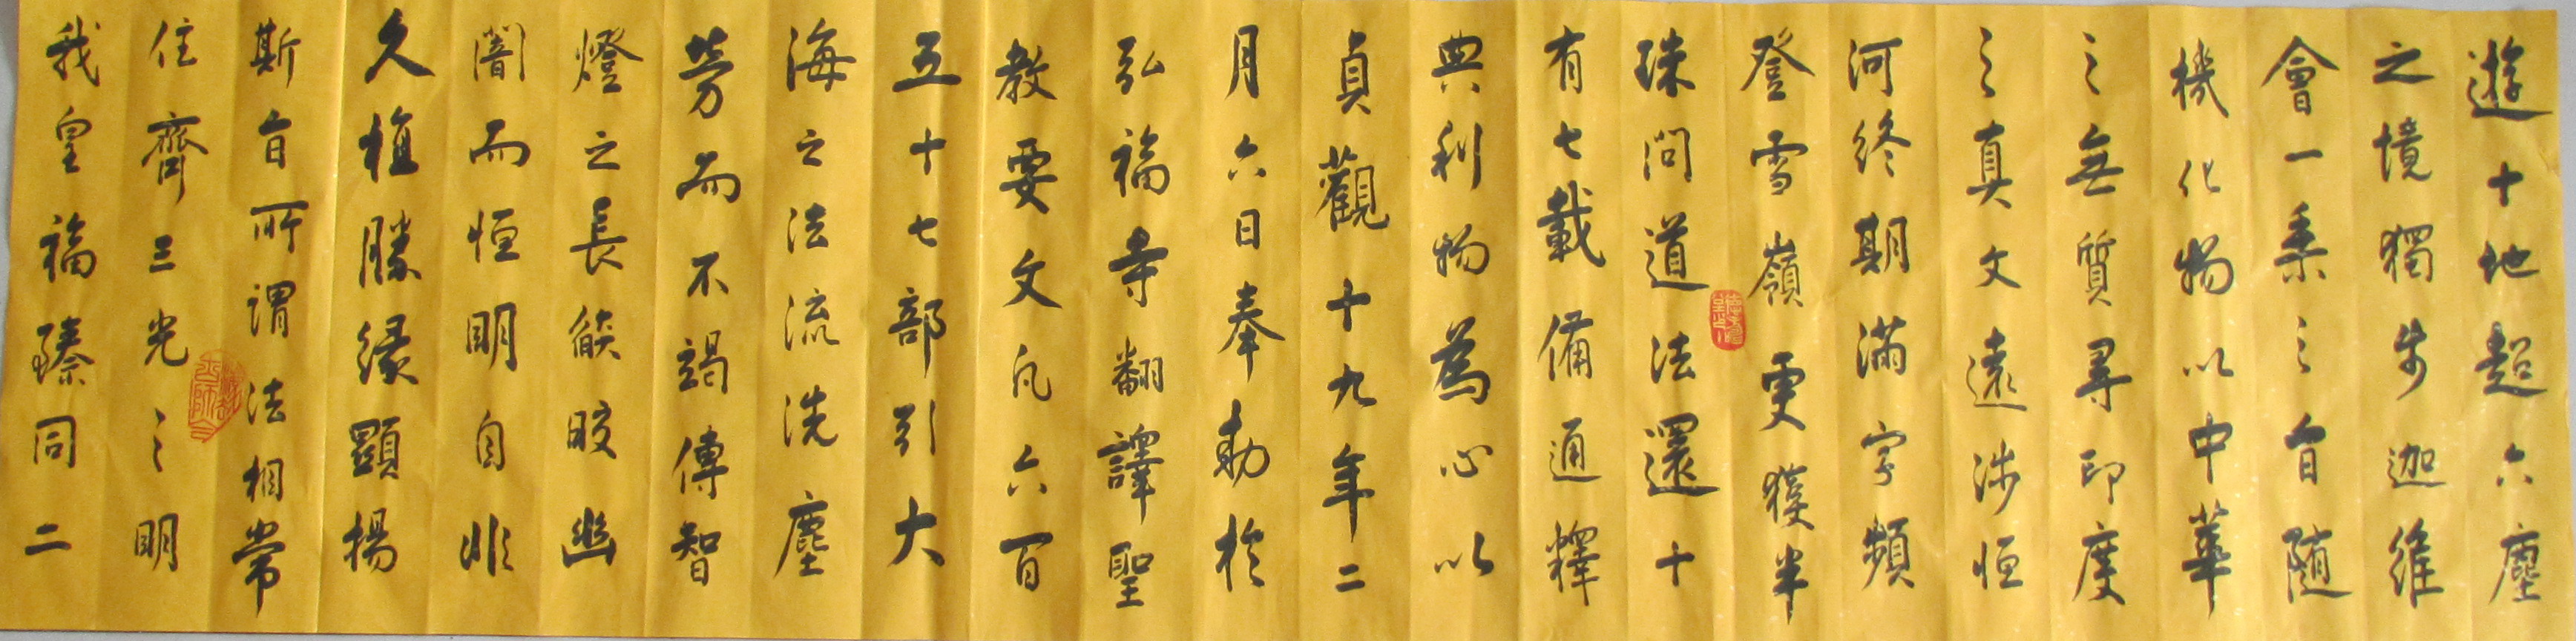 遊十地超六塵
之境獨步迦維
會一乘之旨隨
機化物以中華
之無質尋印度
之真文遠涉恒
河終期滿字頻
登雪嶺更獲半
珠問道法還十
有七載備通釋
典利物為心以
貞觀十九年二
月六日奉勅於
弘福寺翻譯聖
教要文凡六百
五十七部引大
海之法流洗塵
勞而不竭傳智
燈之長燄皎幽
闇而恒明自非
久植勝緣顯揚
斯旨所謂法相常
住齊三光之明
我皇福臻同二